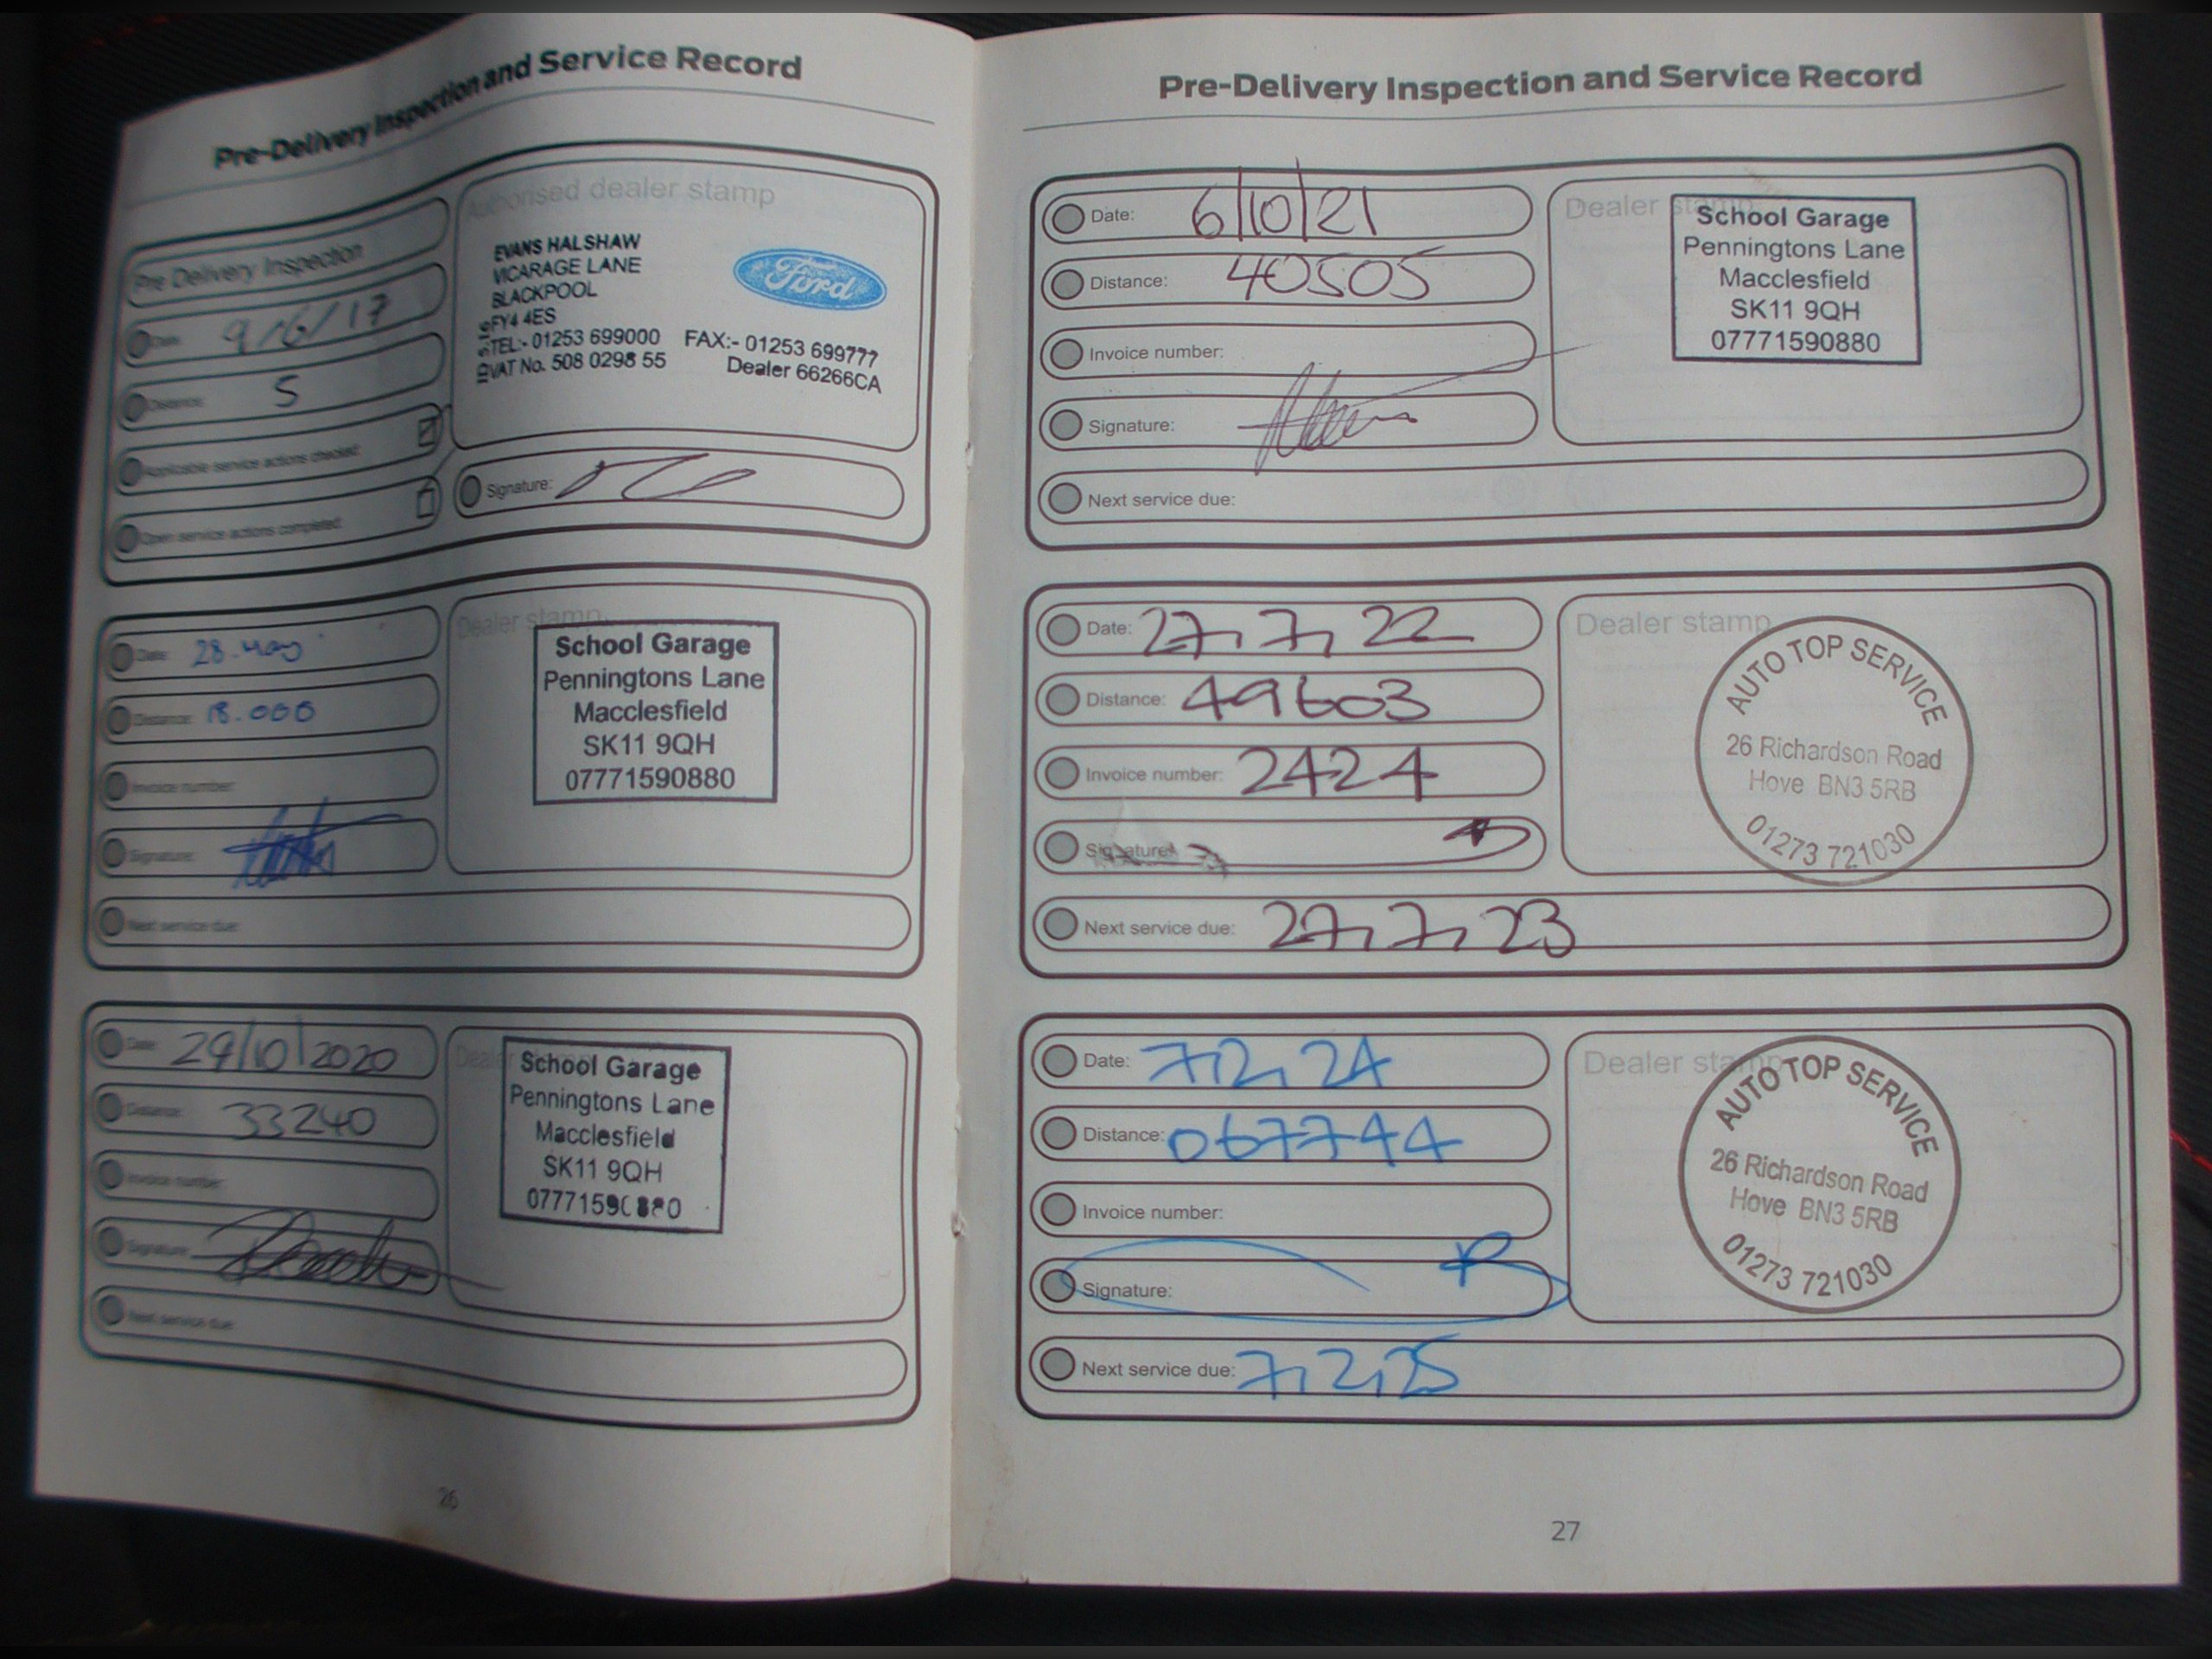 Pre-Delivery Inspection and Service Record
Pre Delivery Inspection
Date: 9/6/17
Distance: 5
Applicable service actions checked:
Open service actions completed:
Authorised dealer stamp
EVANS HALSHAW
VICARAGE LANE
BLACKPOOL
FY4 4ES
TEL:- 01253 699000 FAX:- 01253 699777
VAT No. 508 0298 55 Dealer 66266CA
Ford
Signature:
Date: 28. May
Distance: 18.000
Invoice number:
Signature:
Next service due:
Dealer stamp
School Garage
Penningtons Lane
Macclesfield
SK11 9QH
07771590880
Date: 29/10/2020
Distance: 33240
Invoice number:
Signature:
Next service due:
Dealer stamp
School Garage
Penningtons Lane
Macclesfield
SK11 9QH
07771590880
26
Pre-Delivery Inspection and Service Record
Date: 6/10/21
Distance: 40505
Invoice number:
Signature:
Next service due:
Dealer stamp
School Garage
Penningtons Lane
Macclesfield
SK11 9QH
07771590880
Date: 27,7,22
Distance: 49603
Invoice number: 2424
Signature:
Next service due: 27,7,23
Dealer stamp
AUTO TOP SERVICE
26 Richardson Road
Hove BN3 5RB
01273 721030
Date: 7,2,24
Distance: 067744
Invoice number:
Signature:
Next service due: 7,2,25
Dealer stamp
AUTO TOP SERVICE
26 Richardson Road
Hove BN3 5RB
01273 721030
27